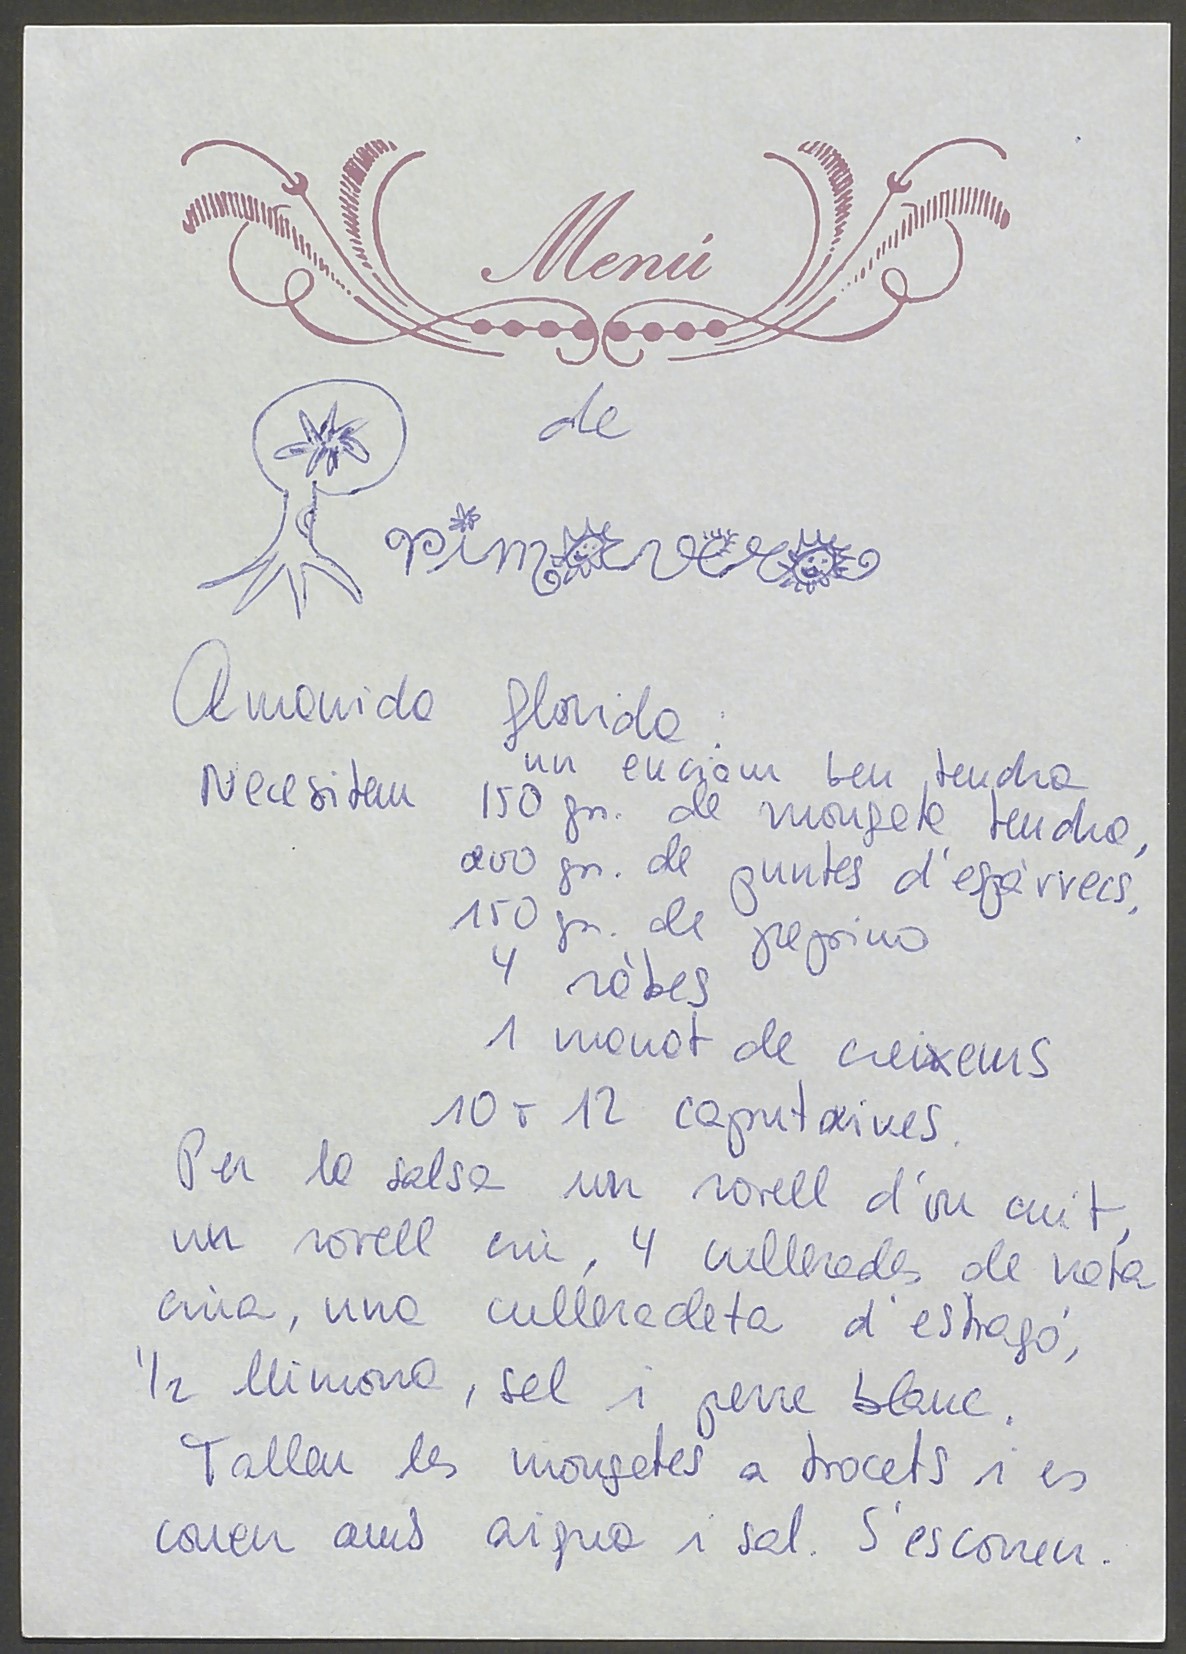 Menú
de
pimavera
Amanida florida:
un enciam ben tendra
Necesitem 150 gr. de mongeta tendra,
200 gr. de puntes d'espàrrecs,
150 gr. de pepino
4 ràbes
1 manat de creixems
10 o 12 caputxines.
Per la salsa un rovell d'ou cuit,
un rovell cru, 4 cullerades de nata
crua, una culleradeta d'estragó,
1/2 llimona, sal i pevre blanc.
Tallen les mongetes a trocets i es
couen amb aigua i sal. S'escorren.